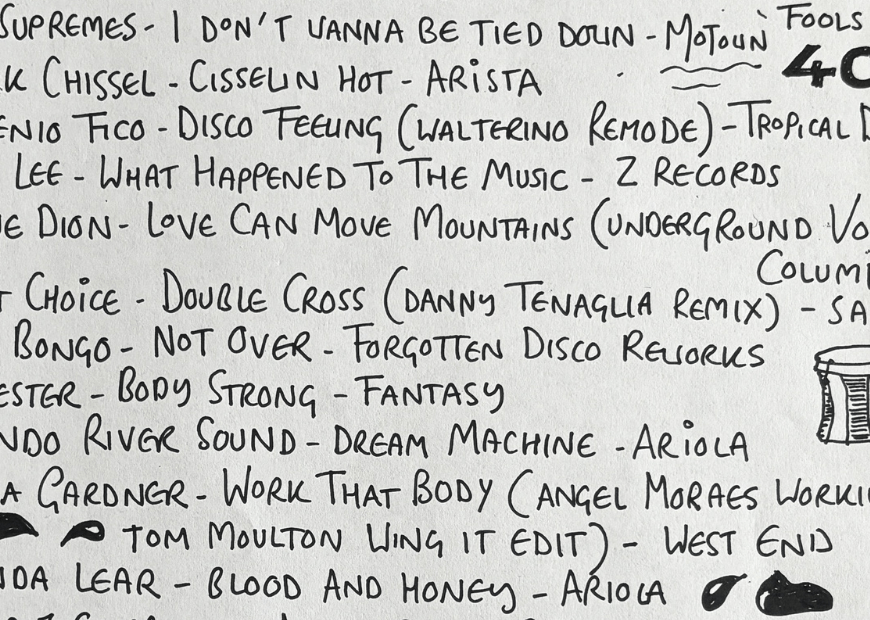 SUPREMES - I DON'T WANNA BE TIED DOWN - MOTOWN FOOLS
K CHISSEL - CISSELIN HOT - ARISTA 40
ENIO FICO - DISCO FEELING (WALTERINO REMODE) - TROPICAL D
LEE - WHAT HAPPENED TO THE MUSIC - Z RECORDS
E DION - LOVE CAN MOVE MOUNTAINS (UNDERGROUND VO
COLUM
T CHOICE - DOUBLE CROSS (DANNY TENAGLIA REMIX) - SA
BONGO - NOT OVER - FORGOTTEN DISCO REWORKS
ESTER - BODY STRONG - FANTASY
NDO RIVER SOUND - DREAM MACHINE - ARIOLA
A GARDNER - WORK THAT BODY (ANGEL MORAES WORKI
TOM MOULTON WING IT EDIT) - WEST END
NDA LEAR - BLOOD AND HONEY - ARIOLA